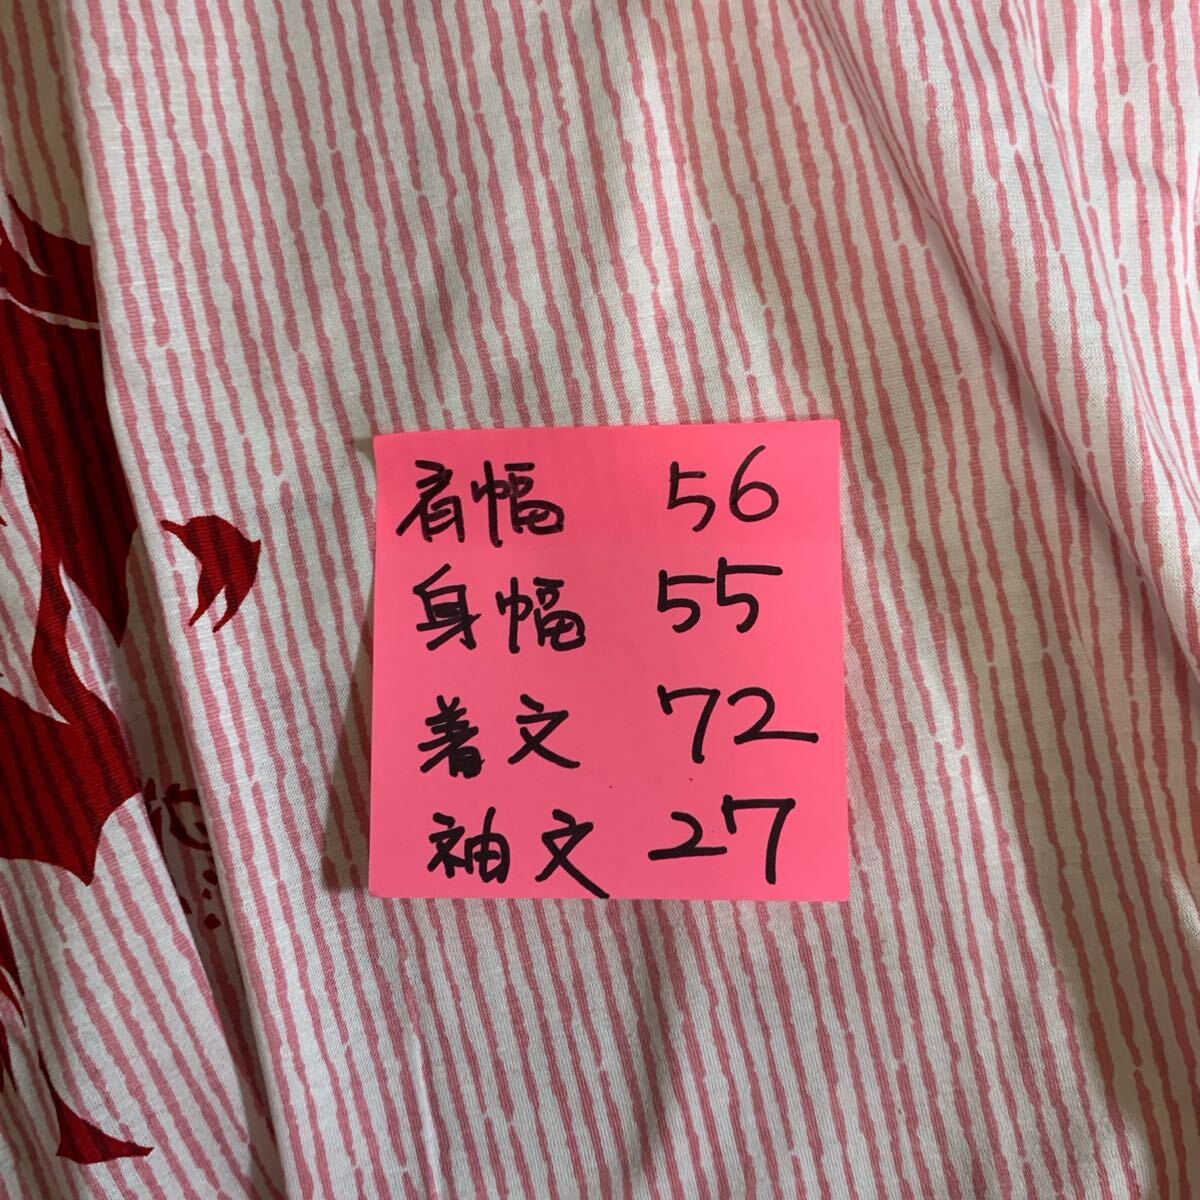 肩幅 56
身幅 55
着文 72
袖文 27